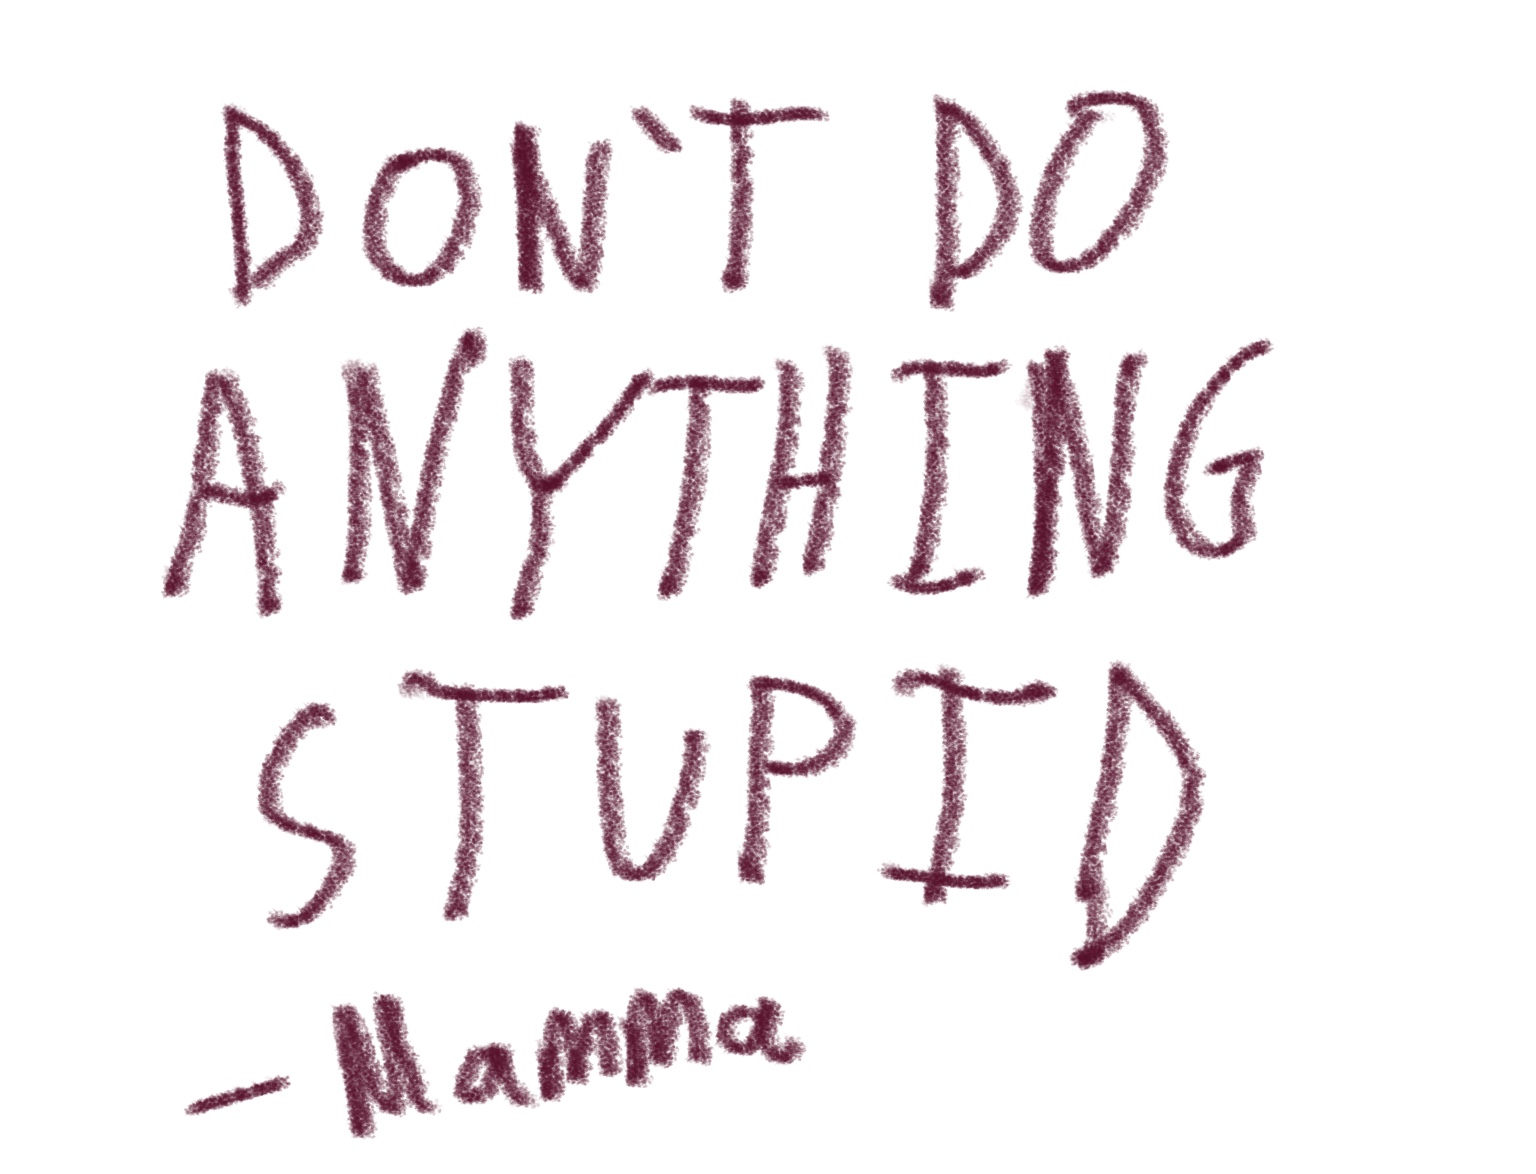 DON`T DO
ANYTHING
STUPID
- Mamma